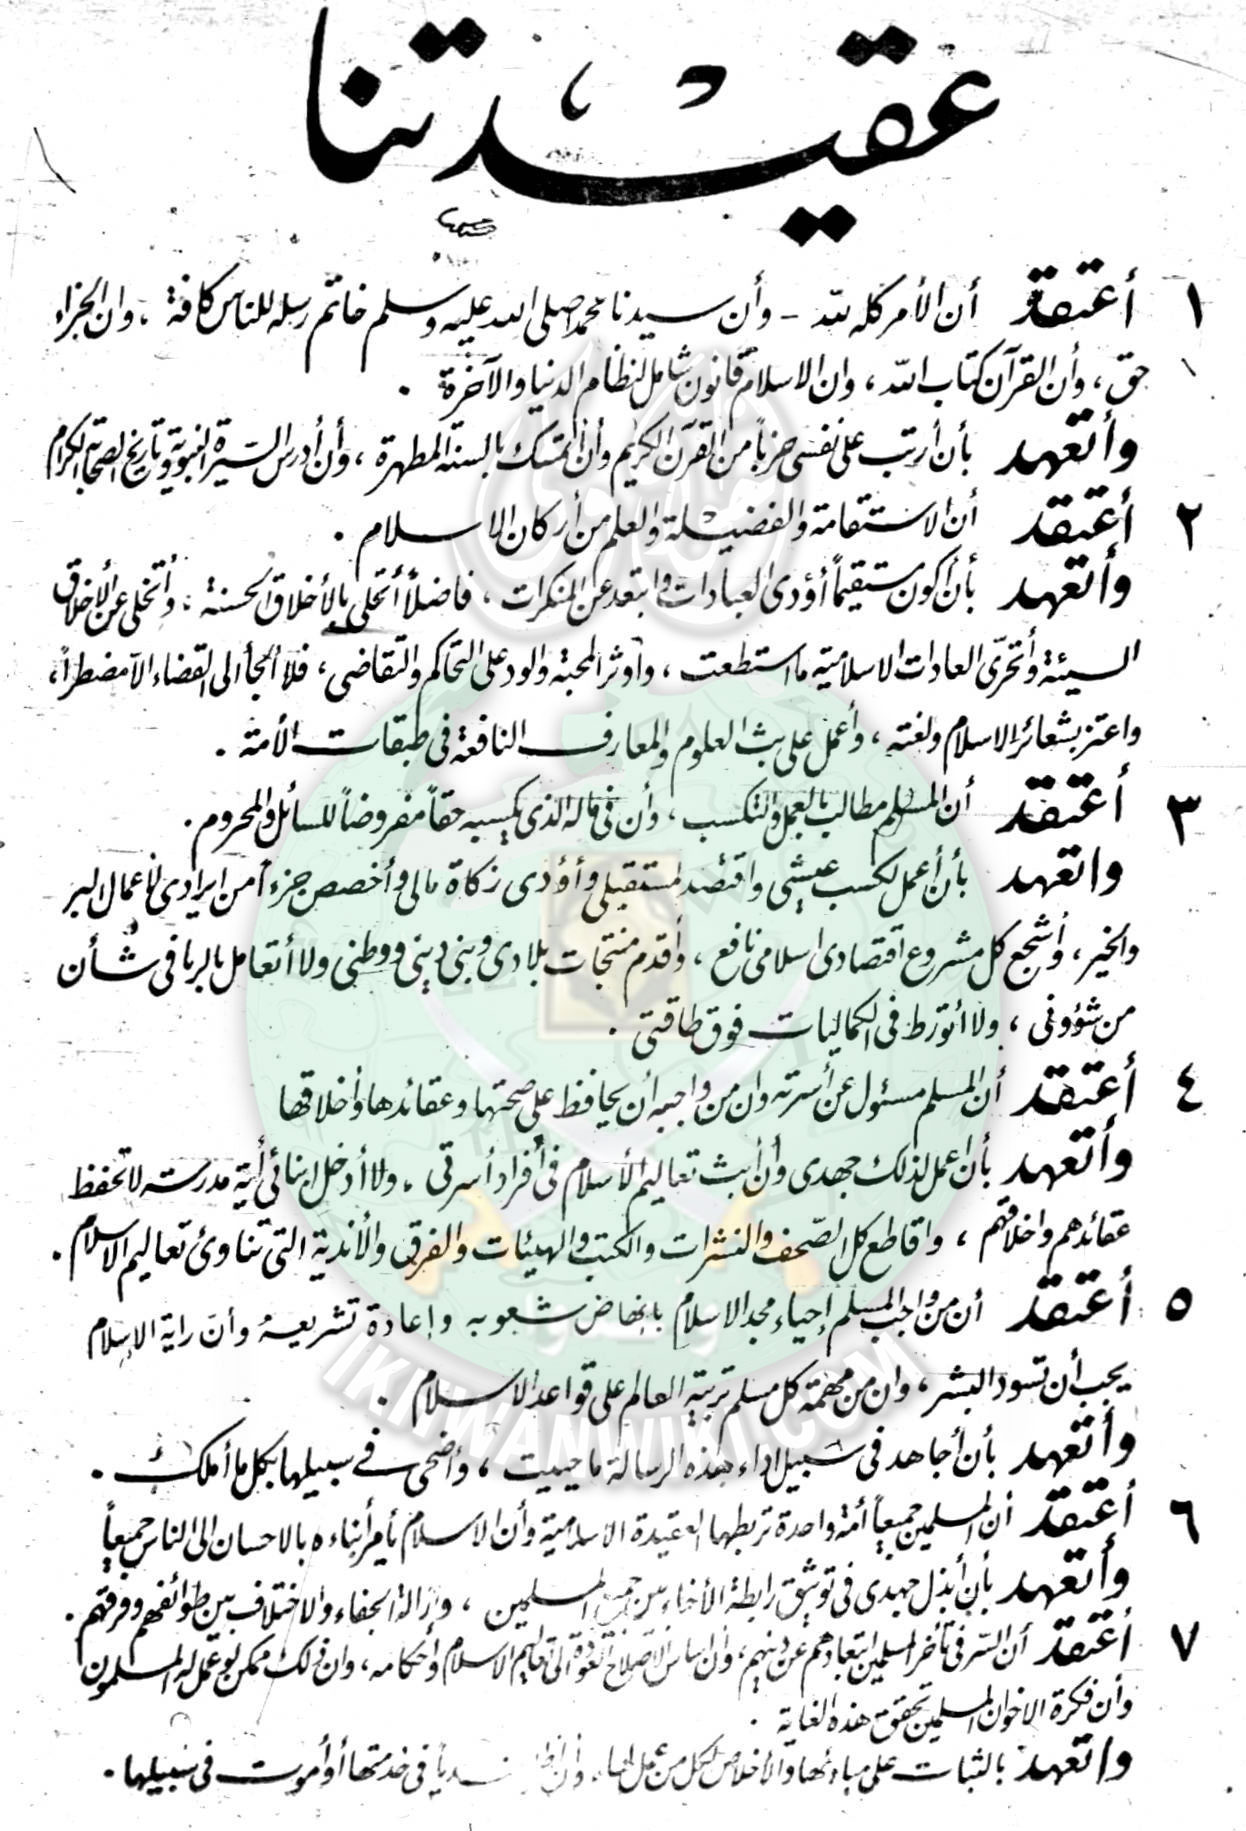 عقيدتنا
١ أعتقد أن الأمر كله لله - وأن سيدنا محمدا صلى الله عليه وسلم خاتم رسله للناس كافة ، وان الجزاء
حق ، وأن القرآن كتاب الله ، وان الاسلام قانون شامل لنظام الدنيا والآخرة .
وأتعهد بأن أرتب على نفسى حزباً من القرآن الكريم وأن أتمسك بالسنة المطهرة ، وأن أدرس السيرة النبوية وتاريخ الصحابة الكرام
٢ أعتقد أن الاستقامة والفضيلة والعلم من أركان الاسلام .
وأتعهد بأن أكون مستقيماً أؤدى العبادات وابتعد عن المنكرات ، فاضلاً أتحلى بالأخلاق الحسنة ، وأتخلى عن الأخلاق
السيئة وأتحرّى العادات الاسلامية ما استطعت ، وأوثر المحبة والود على التحاكم والتقاضى ، فلا ألجأ الى القضاء الا مضطراً ،
واعتز بشعائر الاسلام ولغته ، وأعمل على بث العلوم والمعارف النافعة فى طبقات الأمة .
٣ أعتقد أن المسلم مطالب بالعمل والتكسب ، وأن فى ماله الذى يكسبه حقاً مفروضاً للسائل والمحروم .
واتعهد بأن أعمل لكسب عيشى واقتصد لمستقبلى وأؤدى زكاة مالى وأخصص جزءاً من ايرادى لأعمال البر
والخير ، وأشجع كل مشروع اقتصادى اسلامى نافع ، وأقدم منتجات بلادى وبنى دينى ووطنى ولا أتعامل بالربا فى شأن
من شؤونى ، ولا أتورط فى الكماليات فوق طاقتى .
٤ أعتقد أن المسلم مسئول عن أسرته وان من واجبه أن يحافظ على صحتها وعقائدها وأخلاقها
وأتعهد بأن اعمل لذلك جهدى وأن أبث تعاليم الأسلام فى أفراد أسرتى ، ولا أدخل ابنائى أية مدرسة لا تحفظ
عقائدهم واخلاقهم ، واقاطع كل الصحف والنشرات والكتب والهيئات والفرق والأندية التى تناوئ تعاليم الاسلام .
٥ أعتقد أن من واجب المسلم إحياء مجد الاسلام بإنهاض شعوبه وإعادة تشريعه وأن راية الإسلام
يجب أن تسود البشر ، وان من مهمة كل مسلم تربية العالم على قواعد الاسلام .
وأتعهد بأن أجاهد فى سبيل اداء هذه الرسالة ما حييت ، وأضحى فى سبيلها بكل ما أملك .
٦ أعتقد أن المسلمين جميعاً أمة واحدة تربطها العقيدة الاسلامية وأن الاسلام يأمر أبناءه بالاحسان الى الناس جميعاً
وأتعهد بأن أبذل جهدى فى توثيق رابطة الأخاء بين جميع المسلمين ، وإزالة الجفاء والاختلاف بين طوائفهم وفرقهم .
٧ أعتقد أن السّر فى تأخر المسلمين ابتعادهم عن دينهم ، وأن اساس الاصلاح العودة الى تعاليم الاسلام وأحكامه ، وان ذلك ممكن لو عمل له المسلمون
وأن فكرة الاخوان المسلمين تحقق هذه الغاية .
واتعهد بالثبات على مبادئها والأخلاص لكل من عمل لها ، وأن جندياً فى خدمتها أو أموت فى سبيلها .
IKHWANWIKI.COM